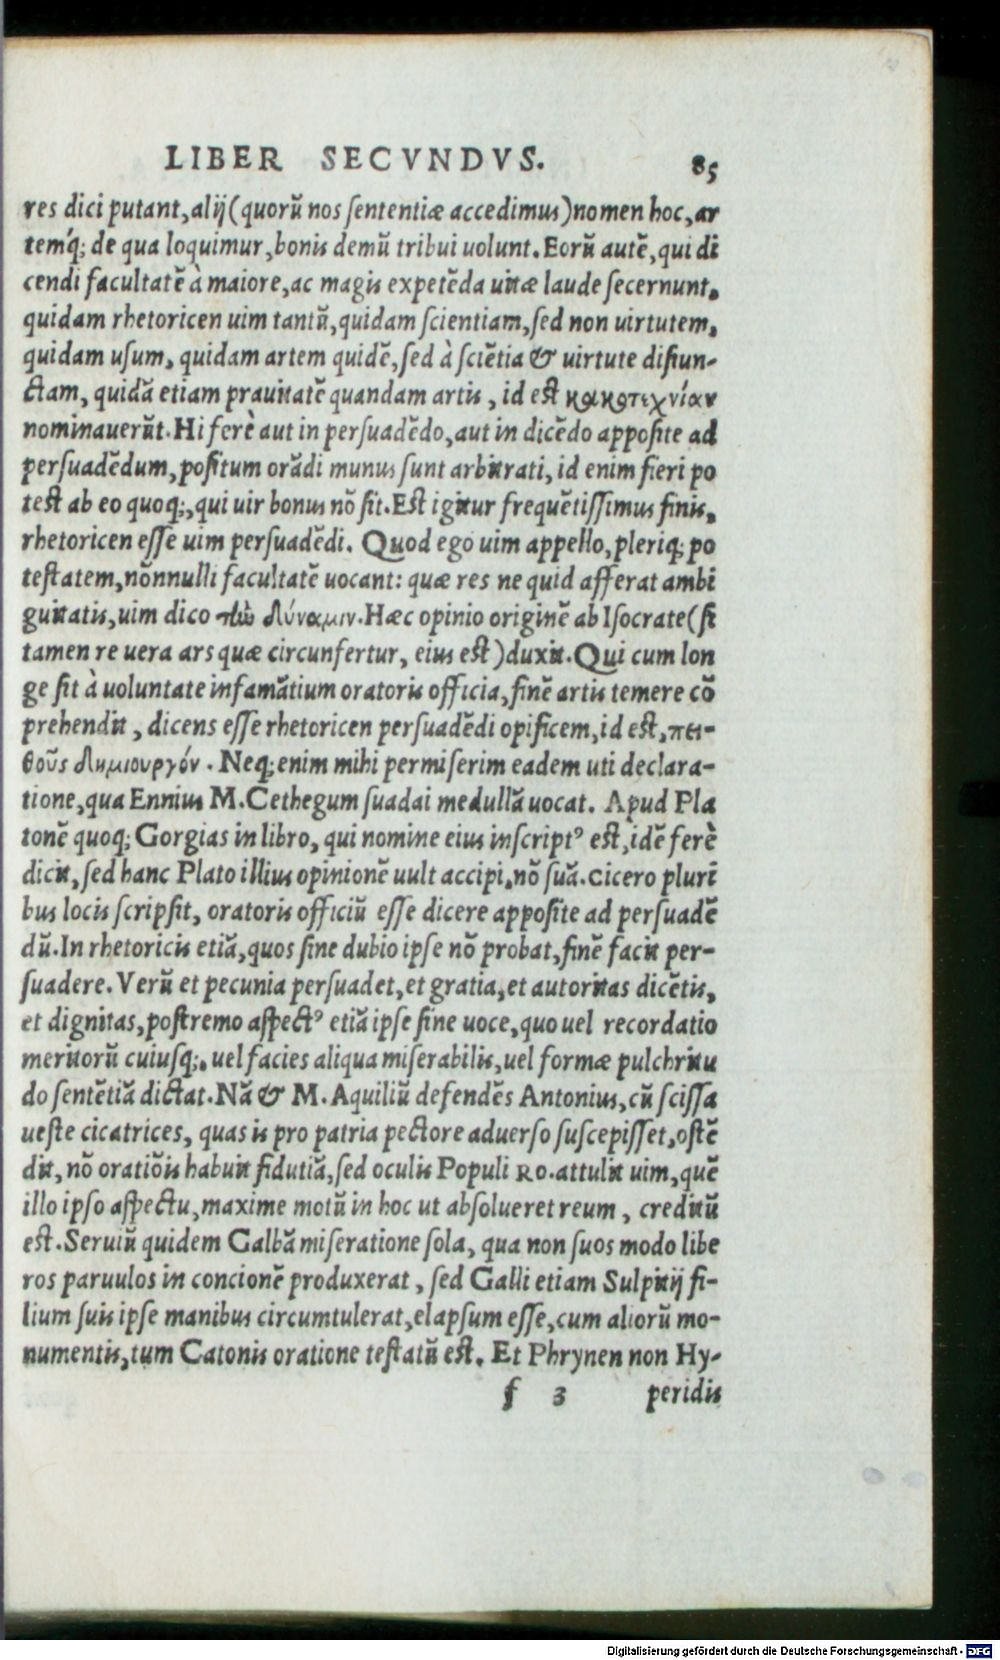 LIBER SECVNDVS. 85
res dici putant, alij (quorũ nos sententiæ accedimus) nomen hoc, ar
temq́; de qua loquimur, bonis demũ tribui uolunt. Eorũ autẽ, qui di
cendi facultatẽ à maiore, ac magis expetẽda uitæ laude secernunt,
quidam rhetoricen uim tantũ, quidam scientiam, sed non uirtutem,
quidam usum, quidam artem quidẽ, sed à sciẽtia & uirtute disiun-
ctam, quidã etiam prauitatẽ quandam artis, id est κακοτεχνίαν
nominauerũt. Hi ferè aut in persuadẽdo, aut in dicẽdo apposite ad
persuadẽdum, positum orãdi munus sunt arbitrati, id enim fieri po
test ab eo quoq;, qui uir bonus nõ sit. Est igitur frequẽtissimus finis,
rhetoricen esse uim persuadẽdi. Quod ego uim appello, pleriq; po
testatem, nõnnulli facultatẽ uocant: quæ res ne quid afferat ambi
guitatis, uim dico τὴν δύναμιν. Hæc opinio originẽ ab Isocrate (si
tamen re uera ars quæ circunfertur, eius est) duxit. Qui cum lon
ge sit à uoluntate infamãtium oratoris officia, finẽ artis temere cõ
prehendit, dicens esse rhetoricen persuadẽdi opificem, id est, πει-
θοῦς δημιουργόν. Neq; enim mihi permiserim eadem uti declara-
tione, qua Ennius M. Cethegum suadai medullã uocat. Apud Pla
tonẽ quoq; Gorgias in libro, qui nomine eius inscriptꝰ est, idẽ ferè
dicit, sed hanc Plato illius opinionẽ uult accipi, nõ suã. Cicero plurĩ
bus locis scripsit, oratoris officiũ esse dicere apposite ad persuadẽ
dũ. In rhetoricis etiã, quos sine dubio ipse nõ probat, finẽ facit per-
suadere. Verũ et pecunia persuadet, et gratia, et autoritas dicẽtis,
et dignitas, postremo aspectꝰ etiã ipse sine uoce, quo uel recordatio
meritorũ cuiusq;, uel facies aliqua miserabilis, uel formæ pulchritu
do sentẽtiã dictat. Nã & M. Aquiliũ defendẽs Antonius, cũ scissa
ueste cicatrices, quas is pro patria pectore aduerso suscepisset, ostẽ
dit, nõ oratiõis habuit fidutiã, sed oculis Populi RO. attulit uim, quẽ
illo ipso aspectu, maxime motũ in hoc ut absolueret reum, creditũ
est. Seruiũ quidem Galbã miseratione sola, qua non suos modo libe
ros paruulos in concionẽ produxerat, sed Galli etiam Sulpitij fi-
lium suis ipse manibus circumtulerat, elapsum esse, cum aliorũ mo-
numentis, tum Catonis oratione testatũ est. Et Phrynen non Hy-
f 3 peridis
Digitalisierung gefördert durch die Deutsche Forschungsgemeinschaft - DFG